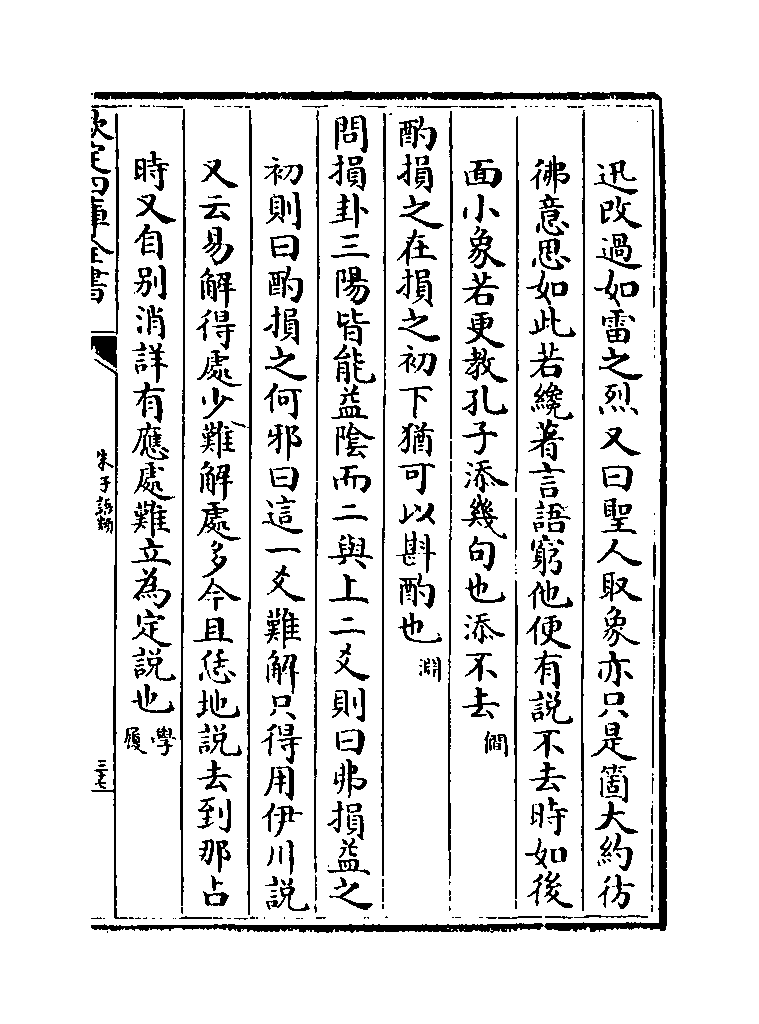 迅改過如雷之烈又曰聖人取象亦只是箇大約彷
彿意思如此若纔著言語窮他便有說不去時如後
面小象若更教孔子添幾句也添不去 僩
酌損之在損之初下猶可以斟酌也 淵
問損卦三陽皆能益陰而二與上二爻則曰弗損益之
初則曰酌損之何邪曰這一爻難解只得用伊川説
又云易解得處少難解處多今且恁地説去到那占
時又自别消詳有應處難立為定説也 學履
欽定四庫全書
朱子語類
三十七